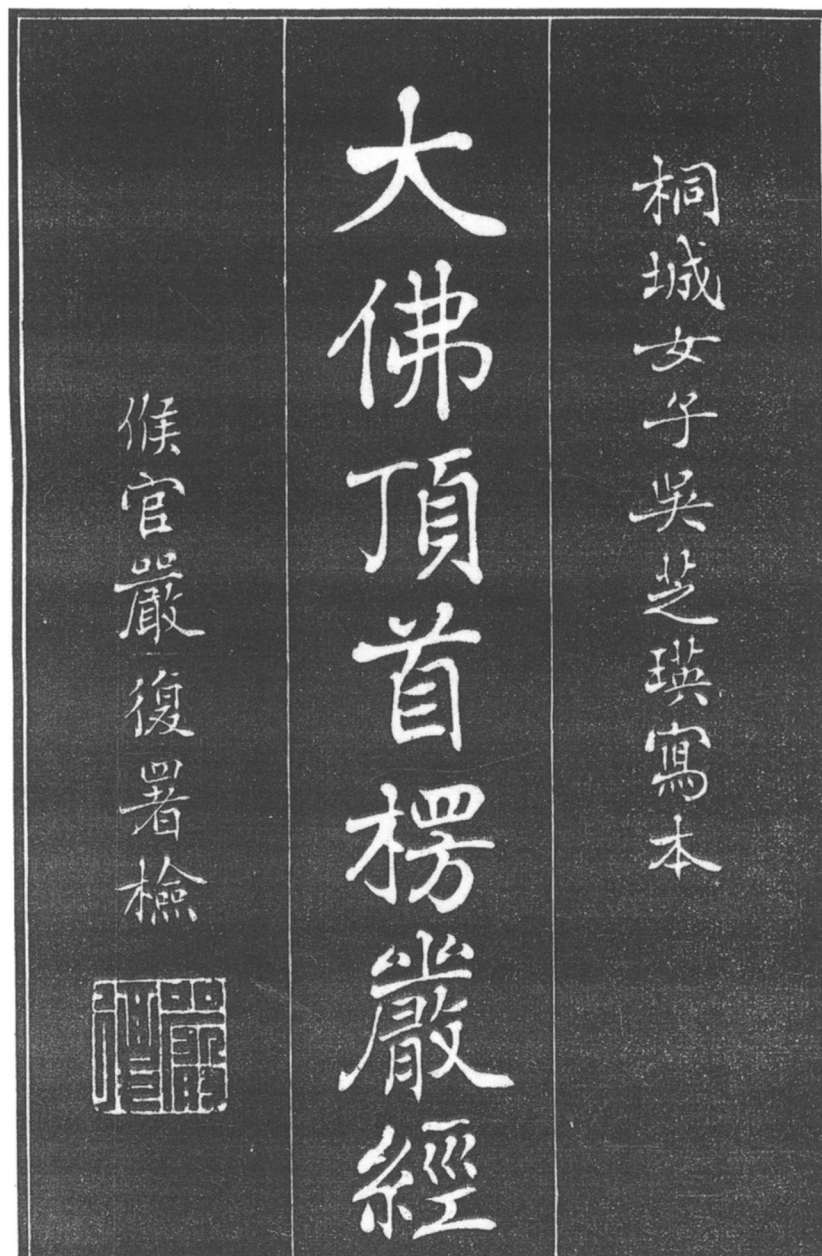 桐城女子吳芝瑛寫本
大佛頂首楞嚴經
候官嚴復署檢
嚴復